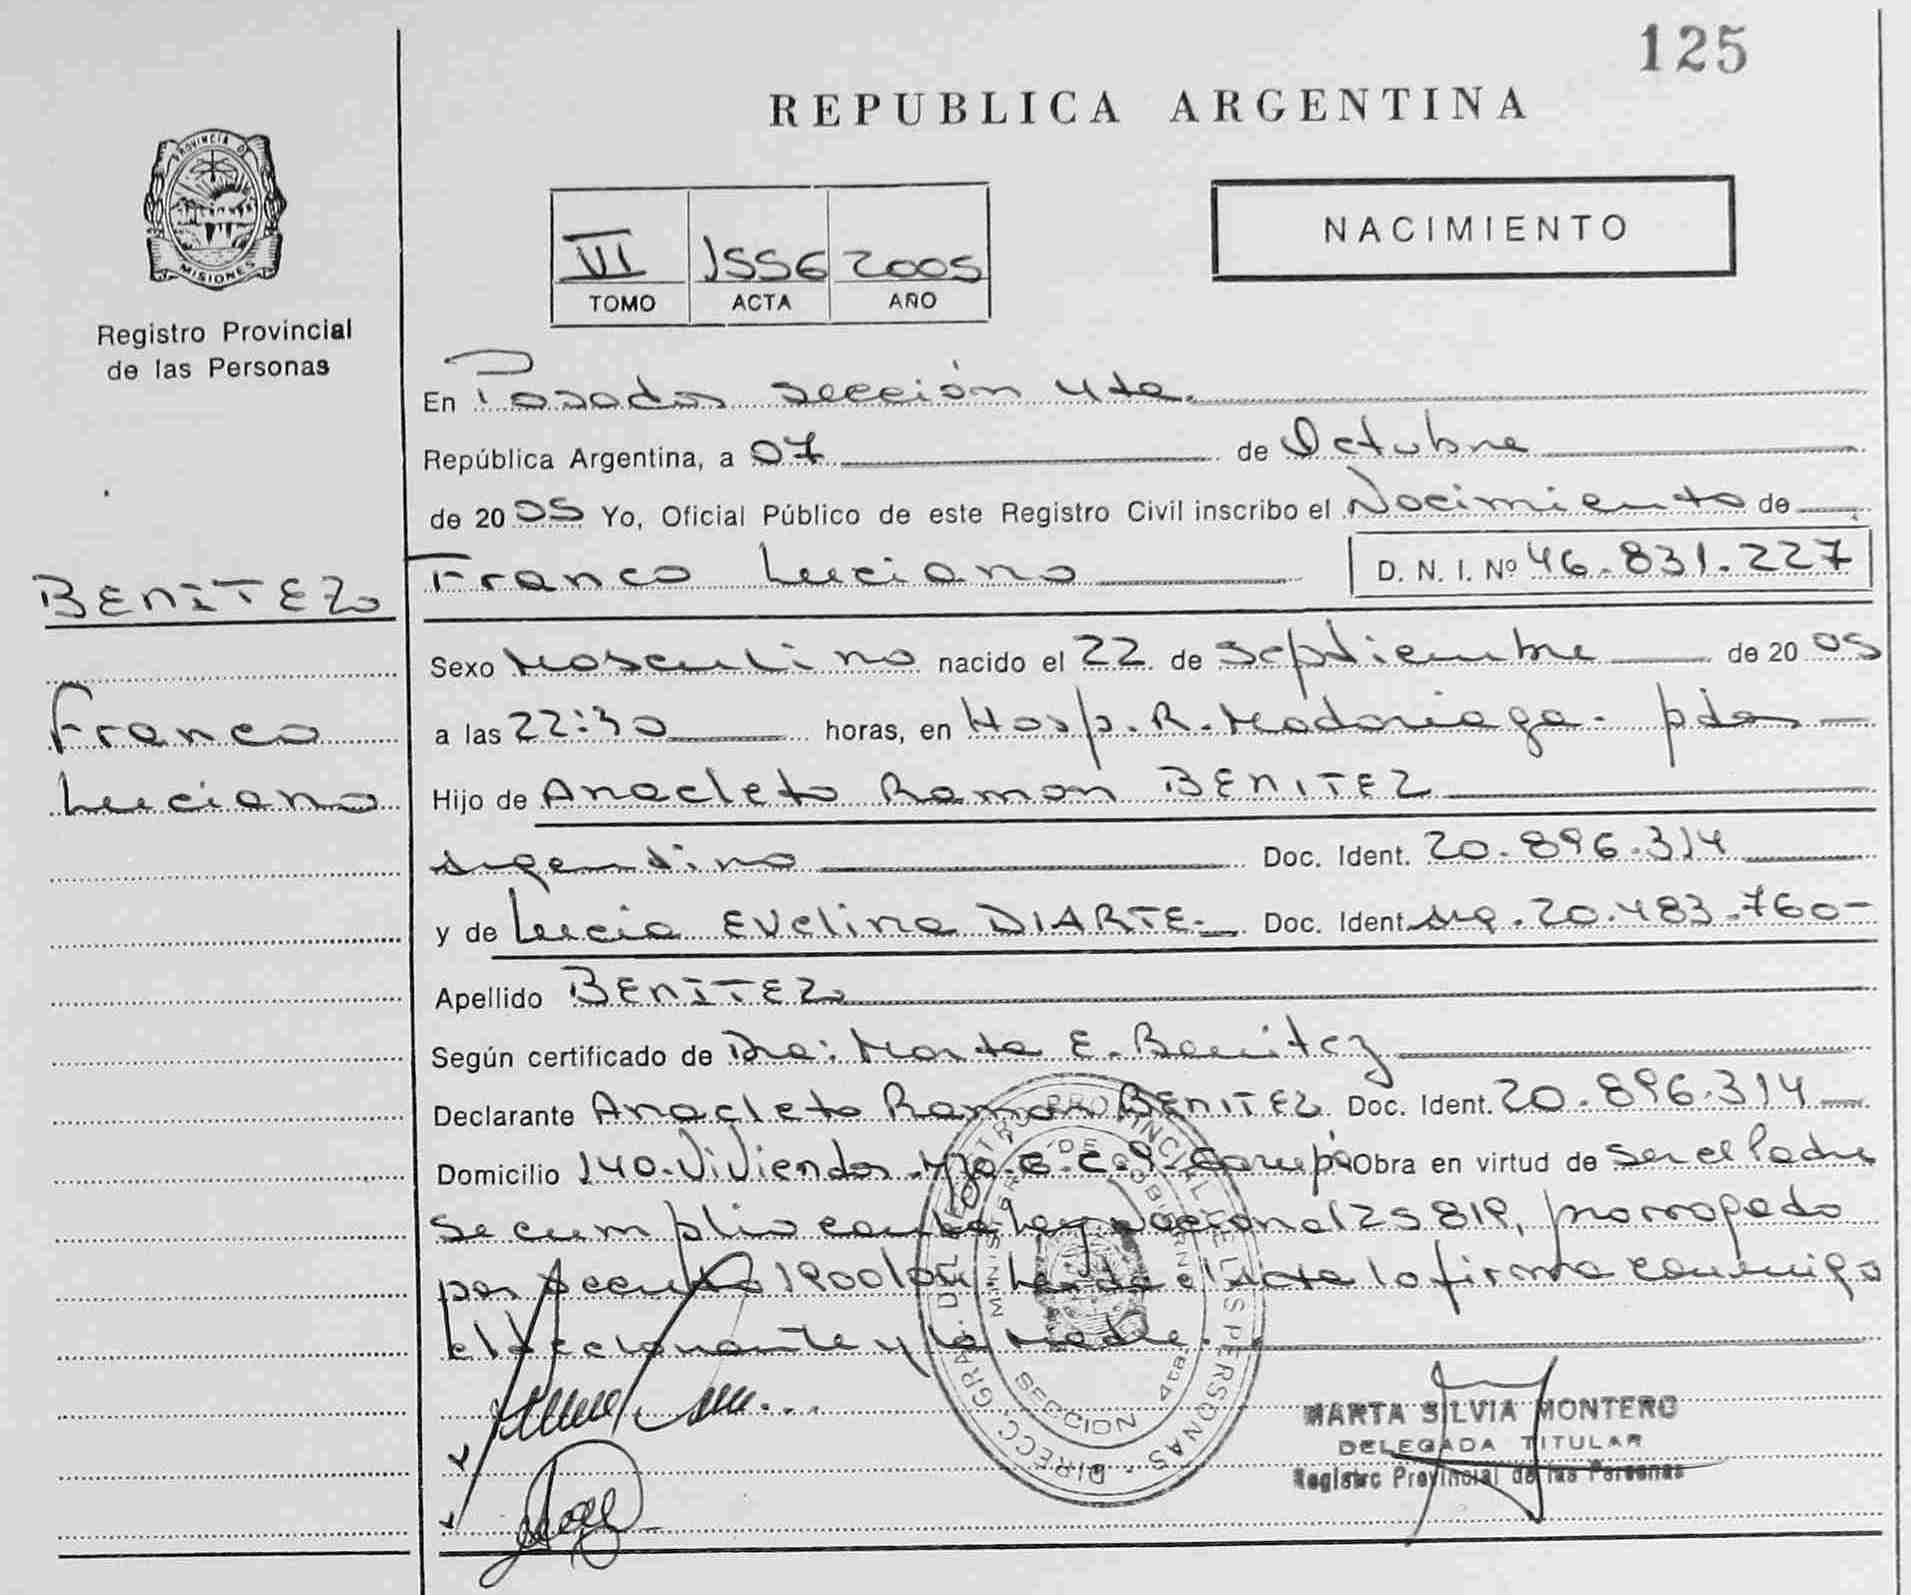 125
REPUBLICA ARGENTINA
PROVINCIA DE
MISIONES
Registro Provincial
de las Personas
NACIMIENTO
VI 1556 2005
TOMO ACTA AÑO
En Posadas sección 4ta.
República Argentina, a 07 de Octubre
de 2005 Yo, Oficial Público de este Registro Civil inscribo el Nacimiento de
Franco Luciano D. N. I. Nº 46.831.227
BENITEZ
Franco
Luciano
Sexo Masculino nacido el 22 de Septiembre de 2005
a las 22:30 horas, en Hosp. R. Madariaga. pdas
Hijo de Anacleto Ramon BENITEZ
argentino Doc. Ident. 20.896.314
y de Lucia Evelina DIARTE Doc. Ident. arg. 20.483.760
Apellido BENITEZ
Según certificado de Dra: Marta E. Benitez
Declarante Anacleto Ramon BENITEZ Doc. Ident. 20.896.314
Domicilio 140 Viviendas Garupá Obra en virtud de Ser el Padre
se cumplio con la Ley nacional 25819, prorrogado
por decreto 1900/04 Leida el Acta lo firma conmigo
el declarante y la madre.
DIRECC. GRAL. DEL REGISTRO PROVINCIAL DE LAS PERSONAS
MINISTERIO DE GOBIERNO
SECCION 4ta
MARTA SILVIA MONTERO
DELEGADA TITULAR
Registro Provincial de las Personas